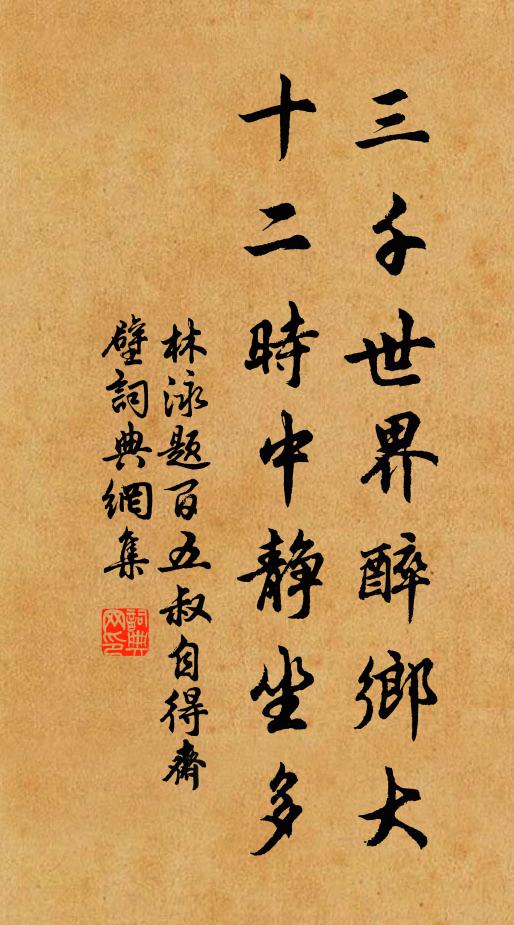 三千世界醉鄉大
十二時中靜坐多
林泳题百五叔自得齋
壁詞典網集
詞典
网印